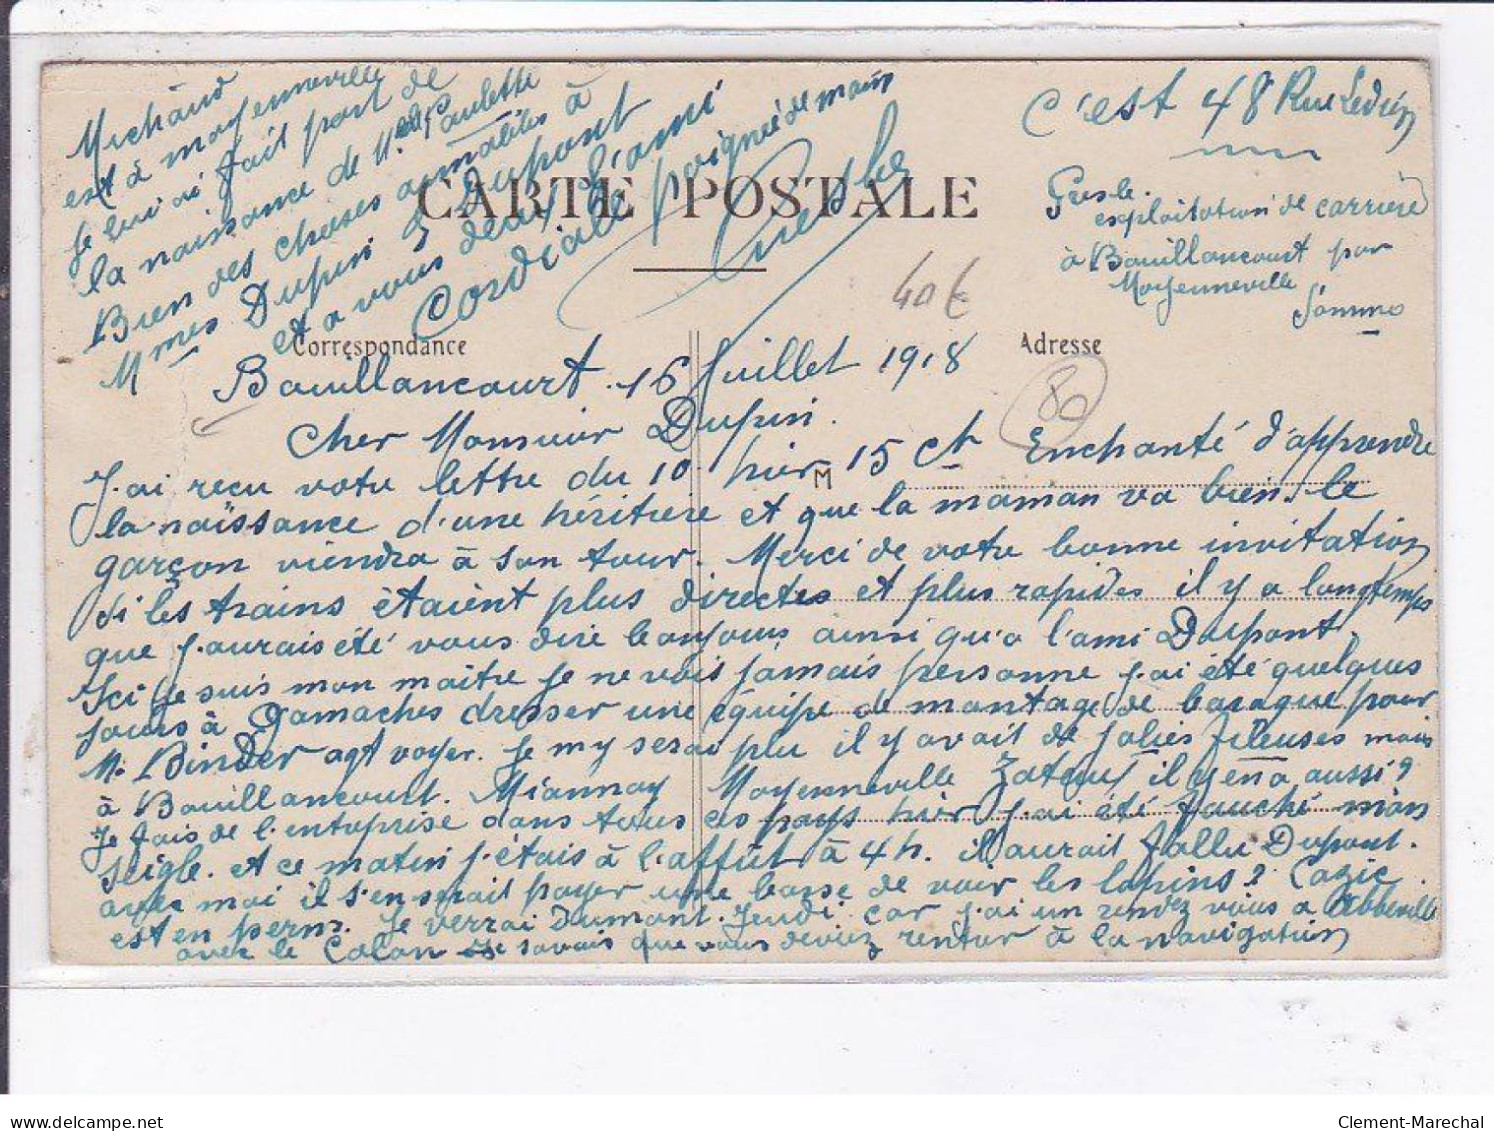 C'est 48 Rue Ledien
exploitation de carrière
à Bouillancourt par
Moyenneville
Somme
CARTE POSTALE
Correspondance
Adresse
40€
80
Bouillancourt. 16 Juillet 1918
Cher Monsieur Dupin.
J'ai reçu votre lettre du 10 hier 15 ct Enchanté d'apprendre
M
la naissance d'une héritière et que la maman va bien. le
garçon viendra à son tour. Merci de votre bonne invitation
si les trains étaient plus directes et plus rapides il y a longtemps
que j'aurais été vous dire bonjour ainsi qu'a l'ami Dupont.
Ici je suis mon maitre je ne vois jamais personne j'ai été quelques
jours à Gamaches dresser une équipe de montage de baraque pour
Mr Binder agt voyer. je m'y serai plu il y avait de jolies fileuses mais
à Bouillancourt. Miannay Moyenneville il y en a aussi?
Je fais de l'entreprise dans tous ces pays hier j'ai été fauché mon
seigle. et ce matin j'étais à l'affût à 4h. il aurait fallu Dupont.
avec moi il s'en serait payer une bosse de voir les lapins? Cazic
est en perm. Je verrai Dumont. Jeudi. car j'ai un rendez vous a Abbeville
avec le Colon je savais que vous deviez rentrer à la navigation
Michaud
est à moyenneville
je lui ai fait part de
la naissance de Melle Paulette
Bien des choses aimables à
Mmes Dupin & Dupont
et a vous deux l'ami
Cordiale poignée de main
Clement-Marechal